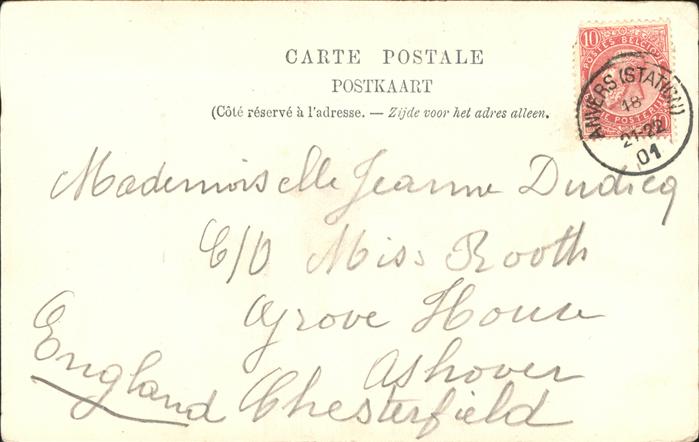 CARTE POSTALE
POSTKAART
(Côté réservé à l'adresse. — Zijde voor het adres alleen.
10
POSTES BELGIQUE
ANVERS (STATION)
18
21-22
01
Mademoiselle Jeanne Dudicq
C/O Miss Rooth
Grove House
Ashover
England Chesterfield